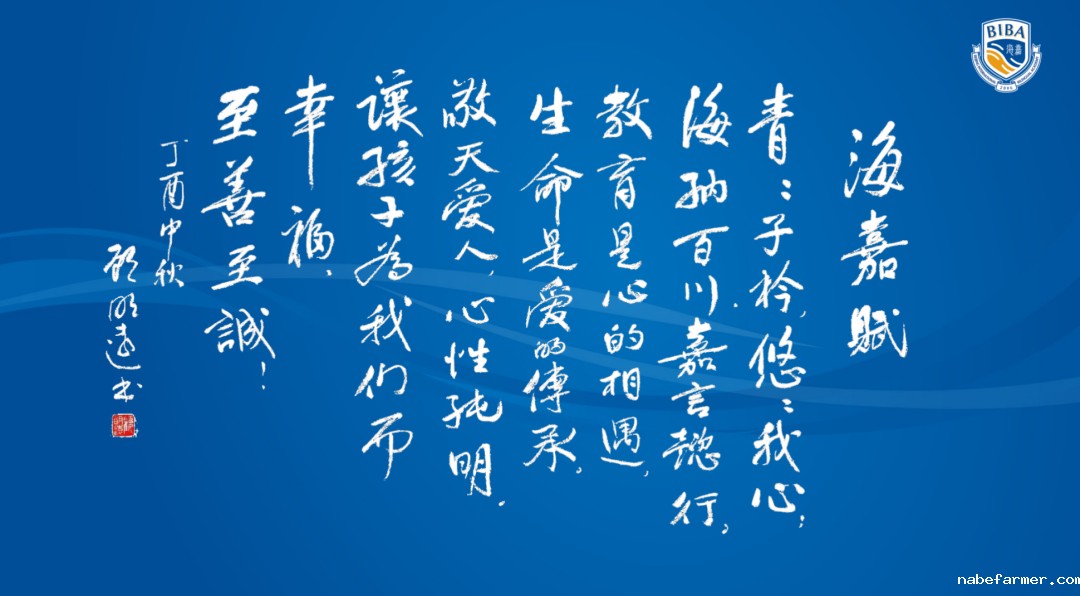 海嘉賦
青〻子衿,悠〻我心;
海纳百川.嘉言懿行,
教育是心的相遇,
生命是爱的傳承。
敬天爱人,心性純明.
讓孩子為我们而
幸福,
至善至誠!
丁酉中秋
顾明远书
BIBA
海嘉
nabefarmer.com